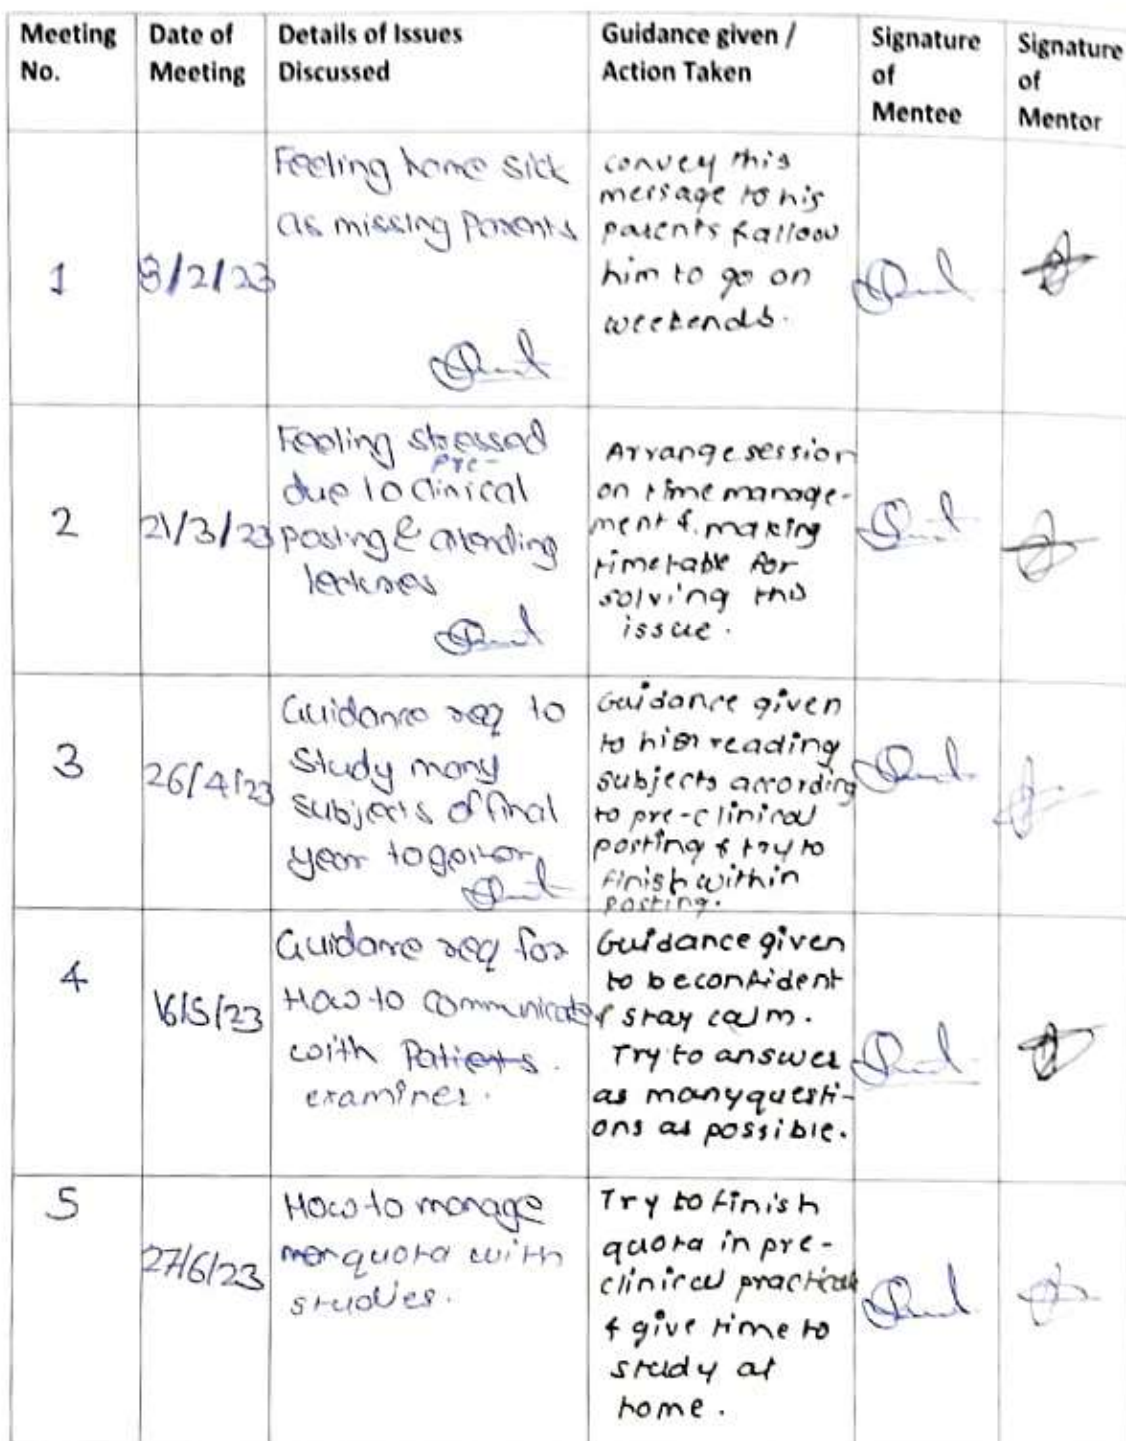 Meeting No.
Date of Meeting
Details of Issues Discussed
Guidance given / Action Taken
Signature of Mentee
Signature of Mentor
1
3/2/23
Feeling home sick
as missing Parents
convey this
message to his
parents & allow
him to go on
weekends.
2
21/3/23
Feeling stressed
due to pre-clinical
posting & attending
lectures
Arrange session
on time manage-
ment & making
timetable for
solving this
issue.
3
26/4/23
Guidance req to
Study many
subjects of final
year together
Guidance given
to him reading
subjects according
to pre-clinical
posting & try to
finish within
posting.
4
16/5/23
Guidance req for
How to communicate
with Patients.
examiner.
Guidance given
to be confident
& stay calm.
Try to answer
as many questi-
ons as possible.
5
27/6/23
How to manage
quota with
studies.
Try to finish
quota in pre-
clinical practical
& give time to
study at
home.